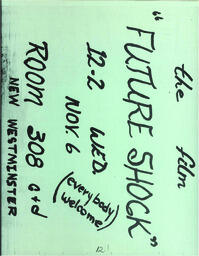 the film
"FUTURE SHOCK"
12-2 WED.
NOV. 6
(everybody
welcome)
ROOM 308 a+d
NEW WESTMINSTER
12